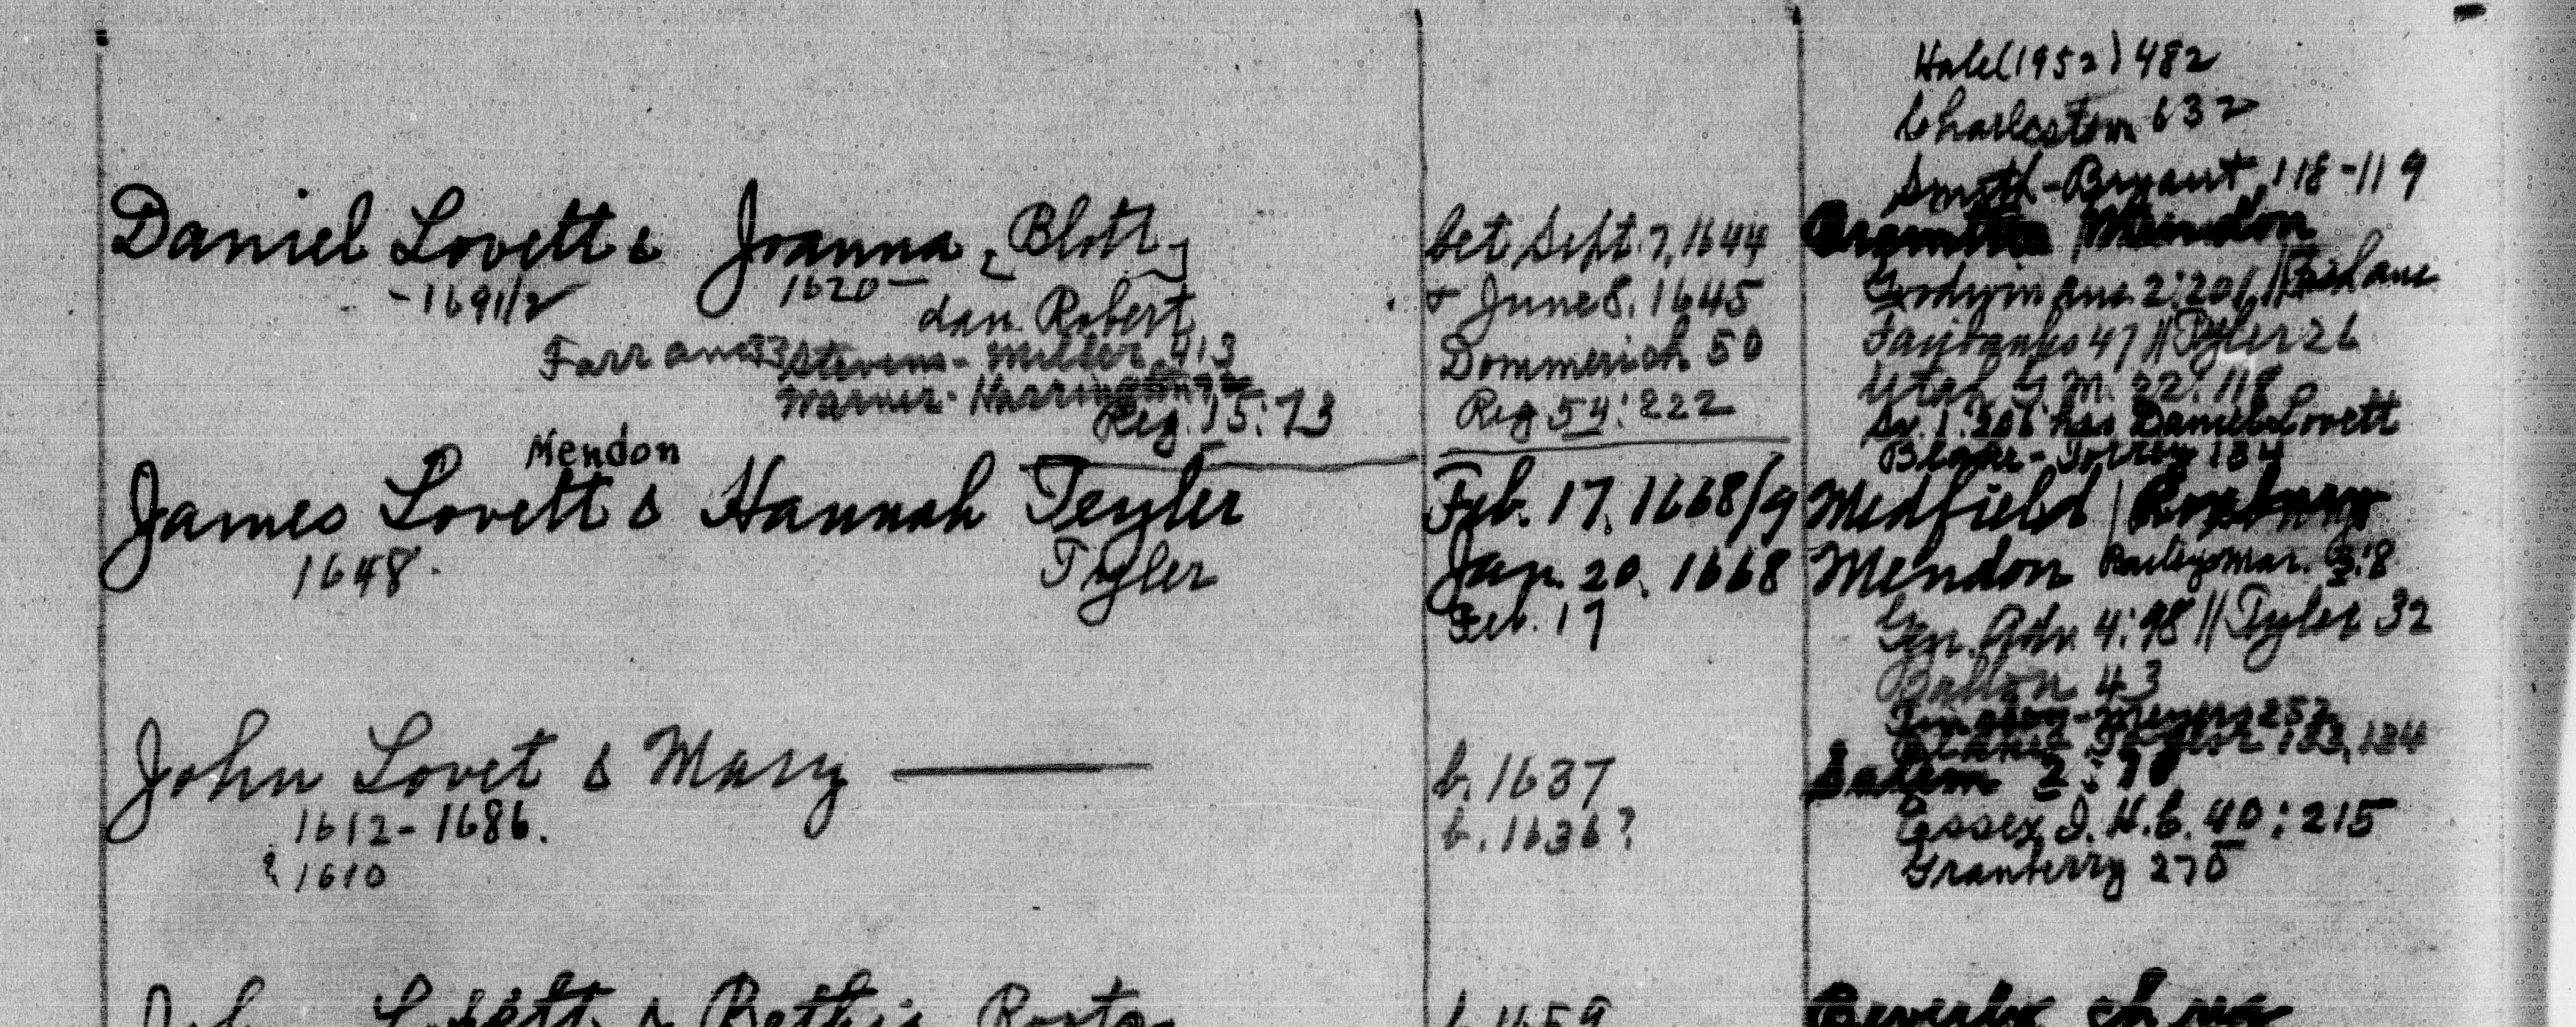 Hale (1952) 482
Charlestown 632
Smith-Bryant, 118-119
Daniel Lovett & Joanna [Blott]
bet Sept. 7, 1644
Braintree / Mendon
-1691/2
1620-
& June 8, 1645
Goodwin Anc. 2:201 //
dau. Robert
Dommerich 50
Fairbanks 47 // Tyler 26
Farr Anc. 33 Stevens-Miller 413
Utah G. M. 22:118
Warner-Harrington
Reg. 15:73
Reg 54:222
Sv. 1:206 has Daniel Lovett
Blake-Torrey 134
Mendon
James Lovett & Hannah Teyler
Feb. 17, 1668/9
Medfield / Roxbury
1648-
Tyler
Jan. 20, 1668
Mendon Bailey Mar. 3:8
Feb. 17
Gen. Adv. 4:98 // Tyler 32
Ballou 43
-Meyers 257
Blake- 133, 134
John Lovet & Mary ———
b. 1637
Salem 2:
1612-1686.
b. 1636?
Essex I. H. C. 40:215
? 1610
Granberry 275
John Lovett & Bethia Roots
b. 1659
Beverly